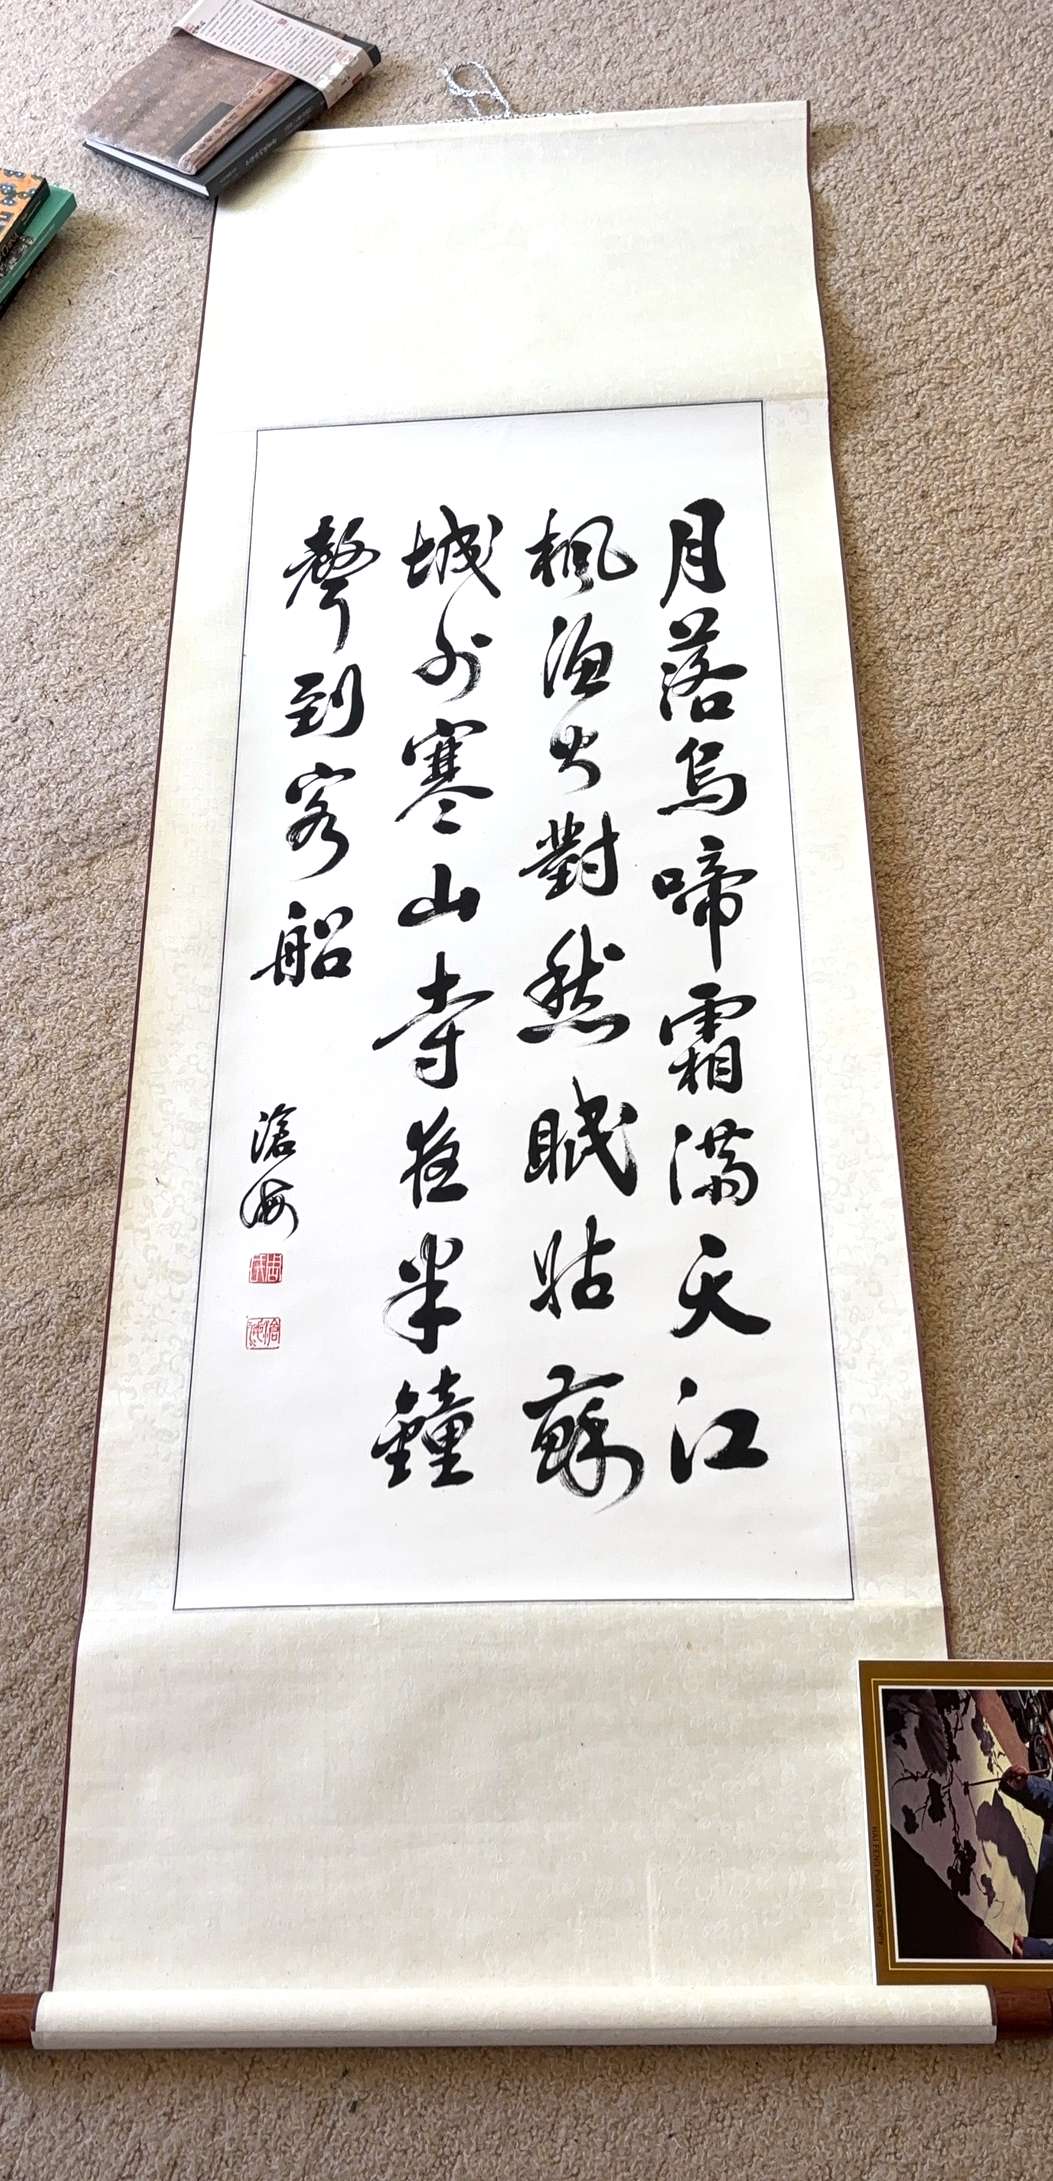 月落烏啼霜滿天江
楓漁火對愁眠姑蘇
城外寒山寺夜半鐘
聲到客船
滄海
HAI FENG